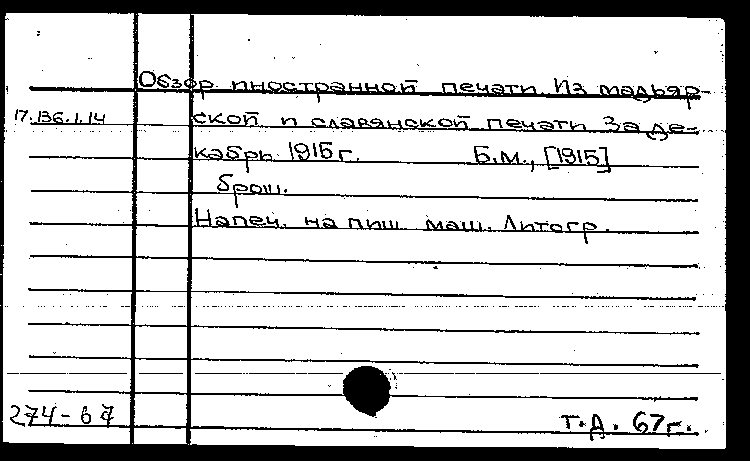 Обзор иностранной печати. Из мадьяр-
17.136.1.14 ской и славянской печати. За де-
кабрь 1915 г. Б.м., [1915]
брош.
Напеч. на пиш. маш. Литогр.
274-67 т.д. 67г.